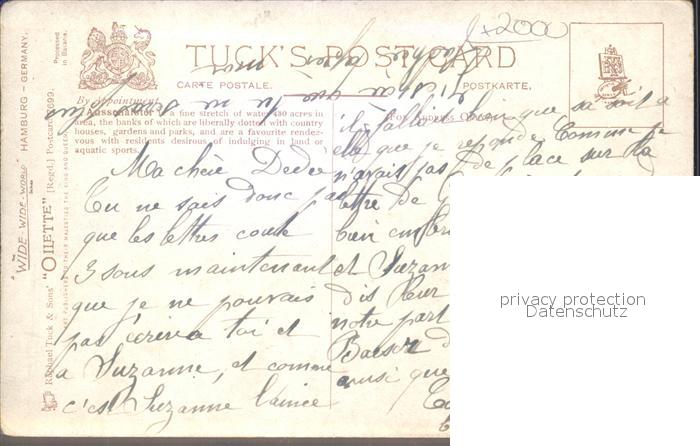 "WIDE-WIDE-WORLD" HAMBURG - GERMANY.
Raphael Tuck & Sons' "OILETTE" [Regd.] Postcard 8699.
ART PUBLISHERS TO THEIR MAJESTIES THE KING AND QUEEN
Processed in Bavaria.
x2000
TUCK'S POST CARD
CARTE POSTALE. POSTKARTE,
By Appointment.
Aussenalster is a fine stretch of water 430 acres in
area, the banks of which are liberally dotted with country
houses, gardens and parks, and are a favourite rendez-
vous with residents desirous of indulging in land or
aquatic sports.
FOR ADDRESS ONLY
Ma chère Dédée
Tu ne sais donc pas
que les lettres coute
3 sous maintenant
que je ne pouvais
pas écrire a toi et
a Suzanne, et comme
c'est Suzanne l'ainée
il fallait bien que ce soit a
elle que je reponde. Comme je
n'avais pas de place sur la
lettre de
bien
et Suzanne
dis leur
notre part
Baiser
ainsi que
privacy protection
Datenschutz